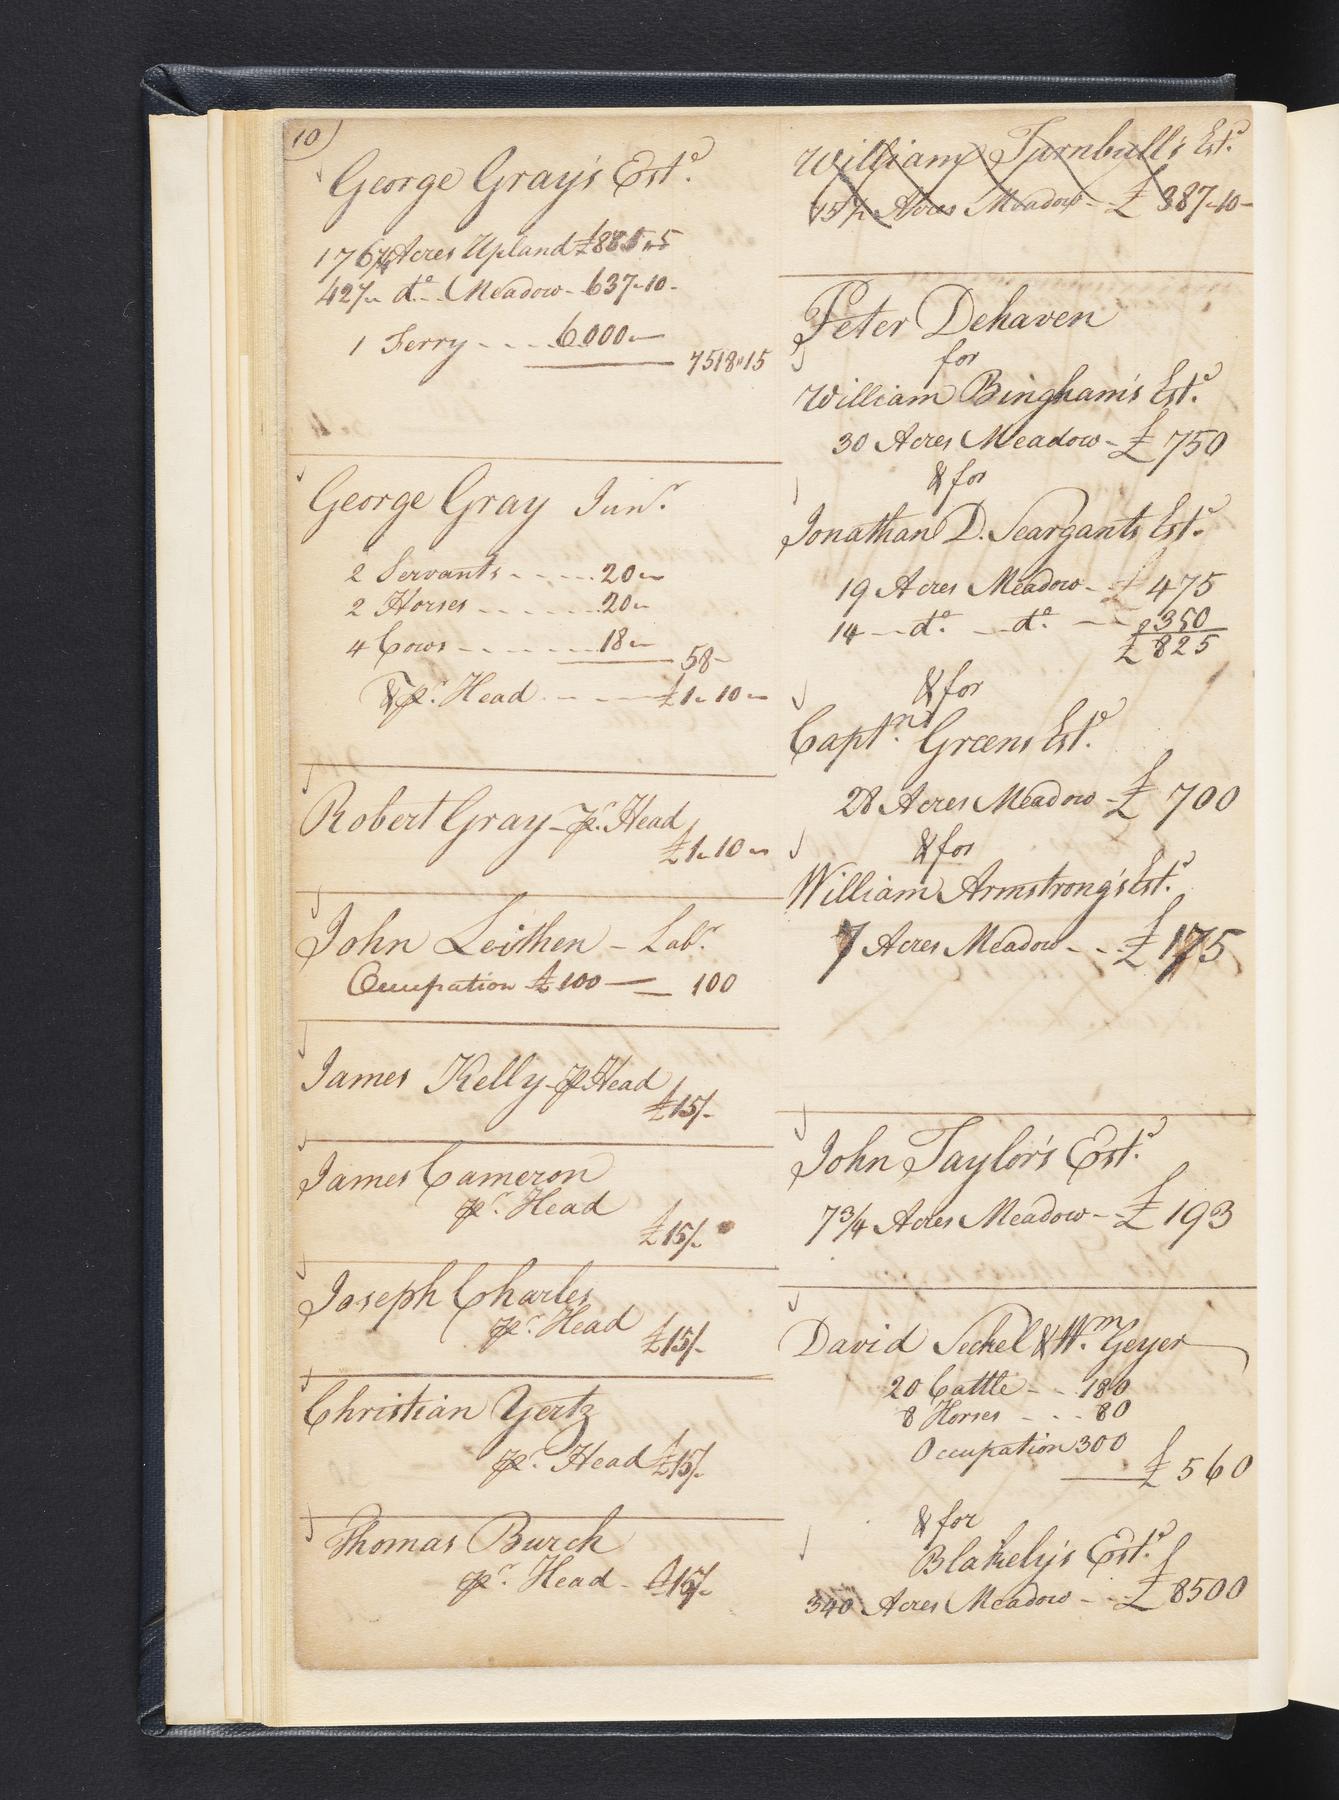 10)
George Gray's Est.e
176 1/4 Acres Upland £881"5
42 1/2 " d.o - - Meadow - 637"10 -
1 Ferry - - - - 6000 "
7518"15
George Gray Jun.r
2 Servants - - - - 20 "
2 Horses - - - - 20 "
4 Cows - - - - 18 "
58 -
& p.r Head - - - £1"10"
Robert Gray - p.r Head
£1"10"
John Leithen - Lab.r
Occupation £100 — — 100
James Kelly - p.r Head
£15/-
James Cameron
p.r Head
£15/-
Joseph Charles
p.r Head
£15/-
Christian Yertz
p.r Head £15/-
Thomas Burch
p.r Head - £15/-
William Turnbull's Est.e
15 1/2 Acres Meadow - - £387"10 -
Peter Dehaven
for
William Bingham's Est.e
30 Acres Meadow - £750
& for
Jonathan D. Seargants Est.e
19 Acres Meadow - £ 475
14 — d.o — d.o — 350
£ 825
& for
Capt.n Greens Est.e
28 Acres Meadow - £ 700
& for
William Armstrong's Est.e
7 Acres Meadow - - £175
John Taylor's Est.e
7 3/4 Acres Meadow - - £ 193
David Seckel & W.m Geyer
20 Cattle - - 180
8 Horses - - - 80
Occupation 300
£ 560
& for
Blakely's Est.e
340 Acres Meadow - - £ 8500